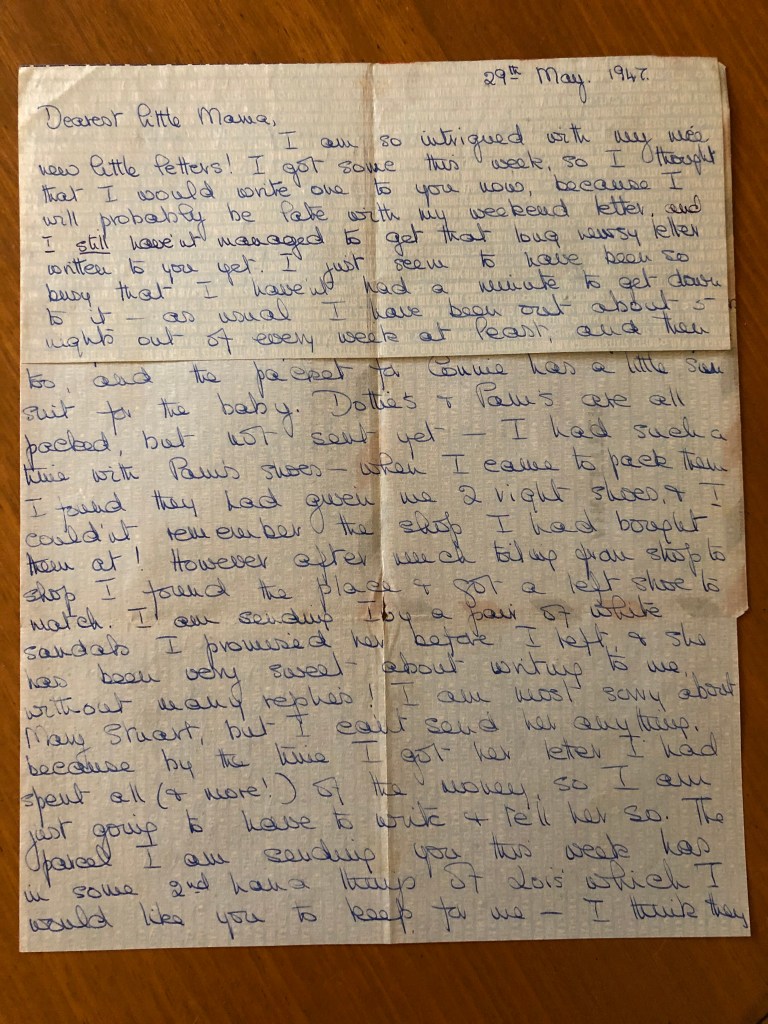 29th May. 1947.
Dearest little Mama,
I am so intrigued with my nice
new little letters! I got some this week, so I thought
that I would write one to you now, because I
will probably be late with my weekend letter, and
I still have'nt managed to get that long newsy letter
written to you yet. I just seem to have been so
busy that I have'nt had a minute to get down
to it – as usual I have been out about 5
nights out of every week at least, and then
to, and the packet for Connie has a little sun
suit for the baby. Dottie's & Pam's are all
packed, but not sent yet – I had such a
time with Pam's shoes – when I came to pack them
I found they had given me 2 right shoes, & I
could'nt remember the shop I had bought
them at! However after much from shop to
shop I found the place & got a left shoe to
match. I am sending Ivy a pair of white
sandals I promised her before I left, & she
has been very sweet about writing to me,
without many replies! I am most sorry about
Mary Stuart, but I cant send her anything,
because by the time I got her letter I had
spent all (& more!) of the money, so I am
just going to have to write & tell her so. The
parcel I am sending you this week has
in some 2nd hand things of Lois' which I
would like you to keep for me – I think they